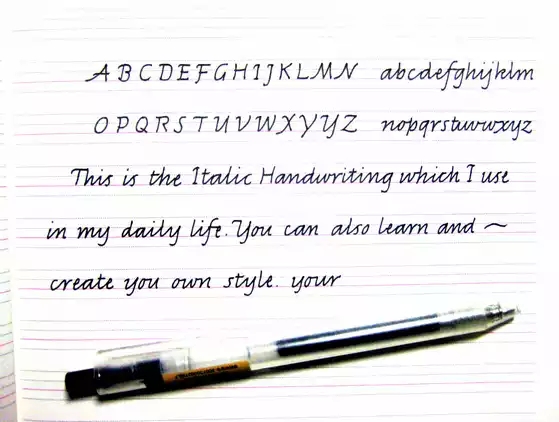 A B C D E F G H I J K L M N abcdefghijklm
O P Q R S T U V W X Y Y Z nopqrstuvwxyz
This is the Italic Handwriting which I use
in my daily life. You can also learn and ~
create you own style. your